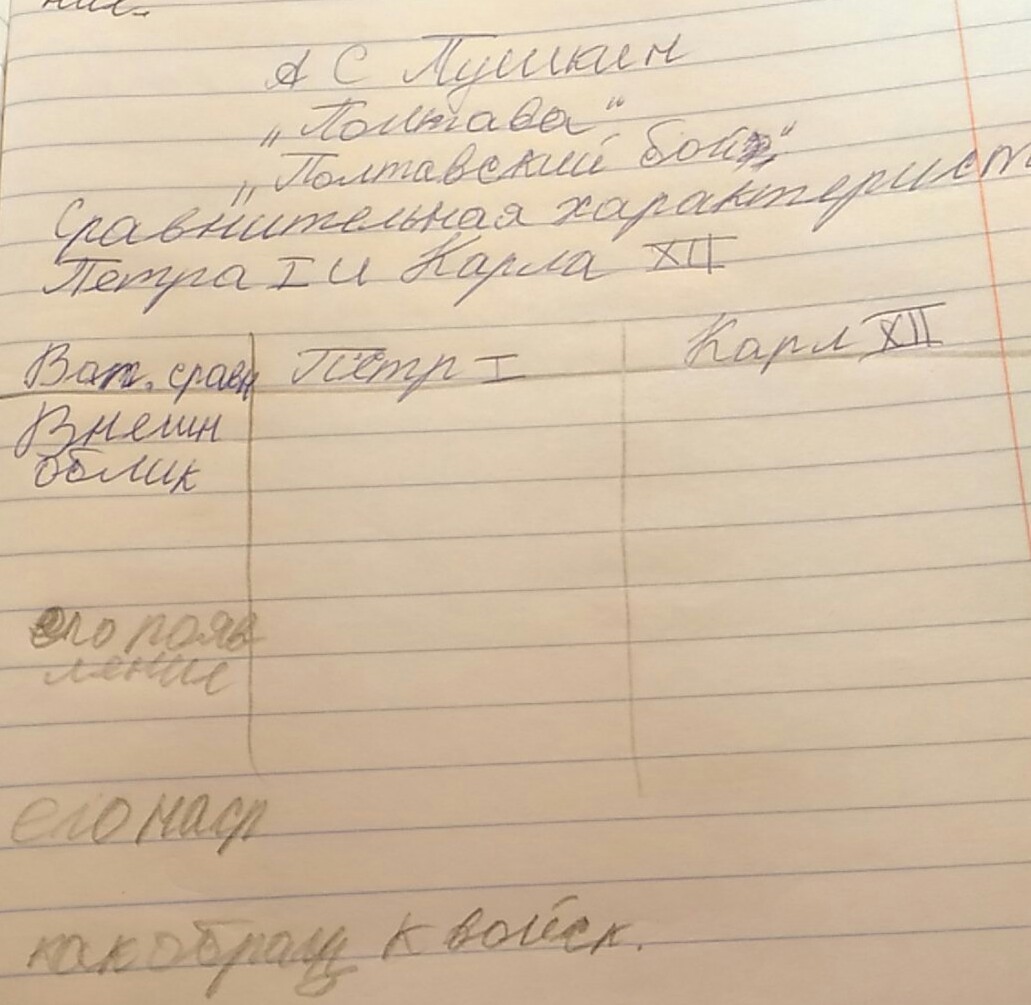 ния.
А С Пушкин
„Полтава"
„Полтавский бой"
Сравнительная характерист
Петра I и Карла XII
Вот. сравн Пётр I Карл XII
Внешн
облик
его появ
ление
его наср
как обращ к войск.